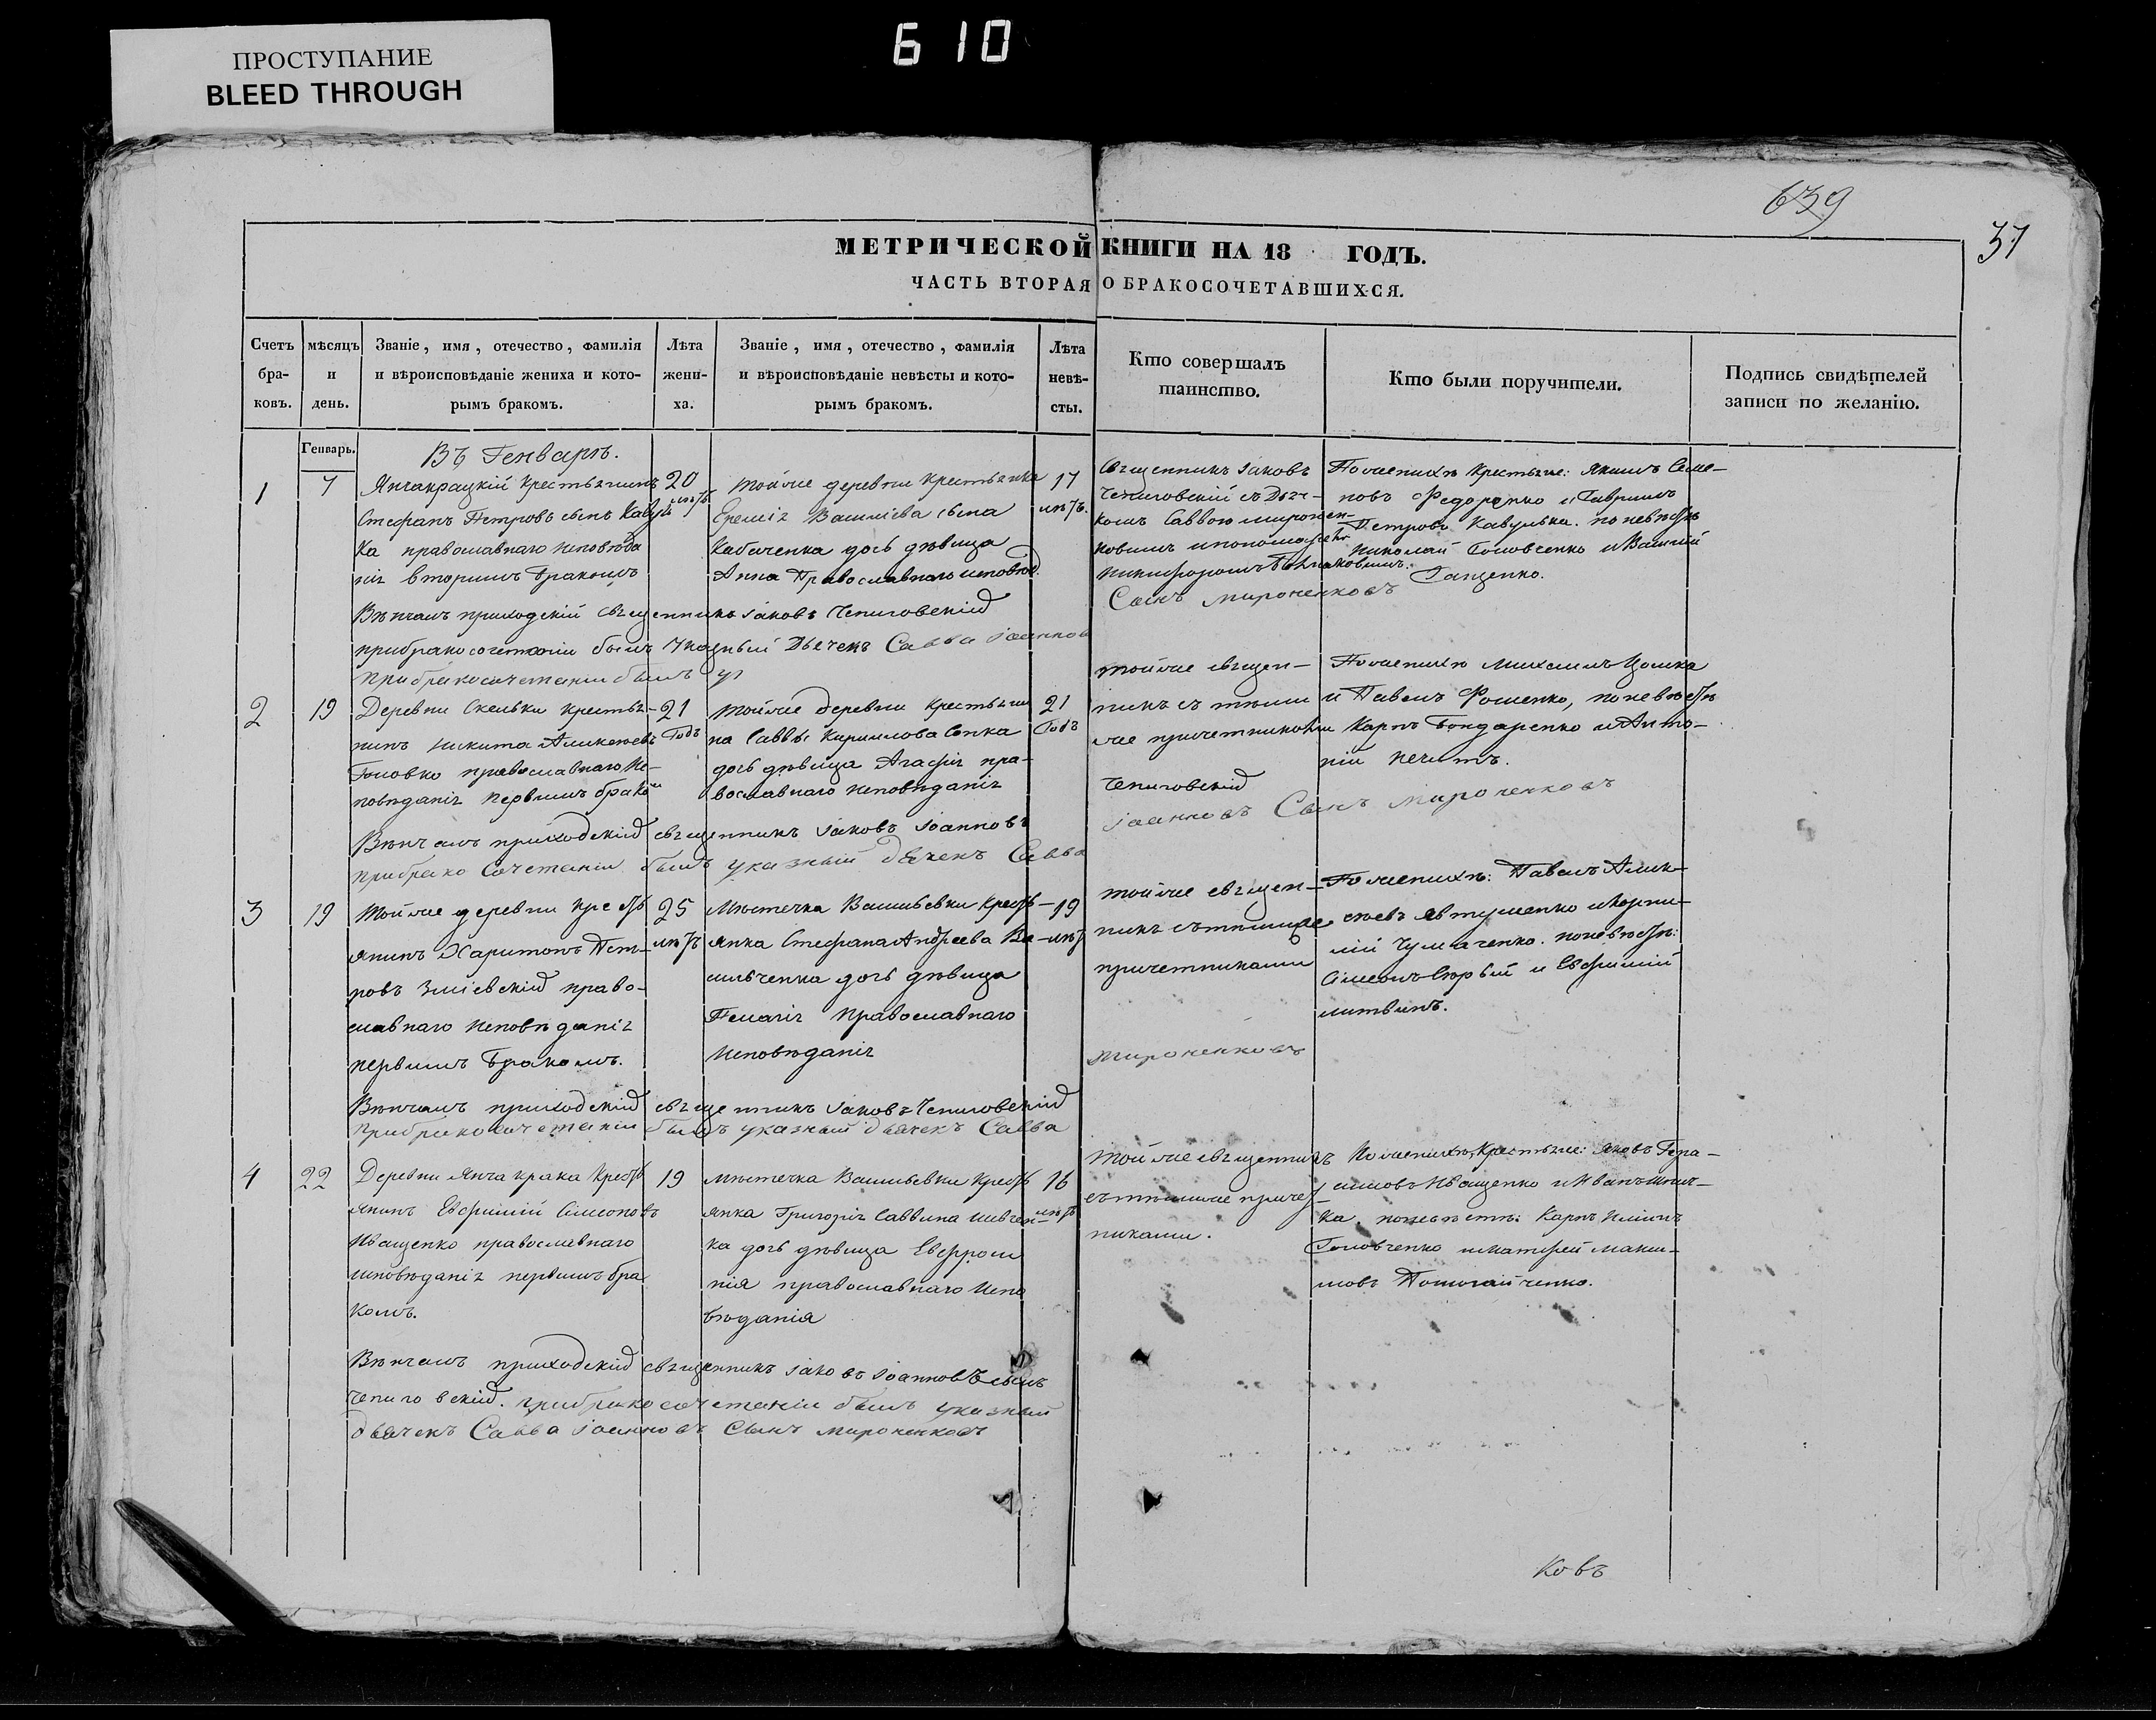 ПРОСТУПАНИЕ
BLEED THROUGH
610
639
37
МЕТРИЧЕСКОЙ КНИГИ НА 18 ГОДЪ.
ЧАСТЬ ВТОРАЯ О БРАКОСОЧЕТАВШИХСЯ.
Счетъ
бра-
ковъ.
мѣсяцъ
и
день.
Званіе, имя, отечество, фамилія
и вѣроисповѣданіе жениха и кото-
рымъ бракомъ.
Лѣта
жени-
ха.
Званіе, имя, отечество, фамилія
и вѣроисповѣданіе невѣсты и кото-
рымъ бракомъ.
Лѣта
невѣ-
сты.
Кто совершалъ
таинство.
Кто были поручители.
Подпись свидѣтелей
записи по желанію.
Генварь.
Въ Генварѣ.
1
7
Янчакрацкій крестьянинъ
Стефанъ Петровъ сынъ
ка православнаго исповѣда
нія вторымъ бракомъ
20
лѣтъ
Тойже деревни крестьянка
Еремія Василіева сына
Кабаченка дочь дѣвица
Анна Православнаго исповѣд.
17
лѣтъ.
Священникъ Іаковъ
Чепиговскій съ Дьяч-
комъ Саввою миронен-
ковымъ и пономаремъ
Никифоромъ
Сынъ мироненковъ
Поженихѣ крестьяне: Якимъ Семе-
новъ Федоренко и Гавріилъ
Петровъ Кавунька. поневѣстѣ
Николай Головченко и Василій
Гащенко.
Вѣнчалъ приходскій священникъ Іаковъ Чепиговскій
прибракосочетаніи былъ Указный Дьячекъ Савва Іоанновъ
прибракосочетаніи былъ ук
2
19
Деревни Скельки крестья-
нинъ Никита Аликсеевъ
Головко православнаго ис-
повѣданія первымъ браком
21
Годъ
Тойже деревни крестьяни
на Саввы Кириллова Сенка
дочь дѣвица Агафія пра-
вославнаго исповѣданія
21
Годъ
Тойже священ-
никъ съ тѣми
же причетниками
Чепиговскій
Іоанновъ Сынъ мироненковъ
Поженихѣ Михаилъ Цомка
и Павелъ Фоменко, поневѣстѣ
Карпъ Бондаренко и Анто-
ній Нечитъ.
Вѣнчалъ приходскій священникъ Іаковъ Іоанновъ
прибрако Сочетаніи былъ указный дьячекъ Савва
3
19
Тойже деревни крестъ
янинъ Харитонъ Пет-
ровъ Зміевскій право-
славнаго исповѣданія
первымъ бракомъ.
25
лѣтъ
Мѣстечка Василъевки крестъ-
янка Стефана Андреева Ва-
сильченка дочь дѣвица
Пелагія православнаго
исповѣданія
19
лѣт
Тойже священ-
никъ съ тѣмиже
причетниками
мироненковъ
Поженихѣ: Павелъ Алик-
сеевъ Явтушенко и Корни-
лій Чумаченко. поневѣстѣ:
Симеонъ Сѣрый и Евфимій
литвинъ.
Вѣнчалъ приходскій священникъ Іаковъ Чепиговскій
прибракосочетаніи былъ указный дьячекъ Савва
4
22
Деревни Янчакрака крестъ
янинъ Евфимій Симеоновъ
Иващенко православнаго
исповѣданія первымъ бра
комъ.
19
Мѣстечка Василъевки крестъ
янка Григорія Саввина Шевчен-
ка дочь дѣвица Евфроси
нія православнаго испо
вѣданія
16
лѣтъ
Тойже священникъ
съ тѣмиже причет-
никами.
Поженихѣ, крестьяне: Яковъ Гера-
симовъ Иващенко и Иванъ
ка, поневѣстѣ: Карпъ Иліинъ
Головченко и Матфей Макси-
мовъ
Вѣнчалъ приходскій священникъ Іаковъ Іоанновъ сынъ
Чепиговскій. прибракосочетаніи былъ указный
дьячекъ Савва Іоанновъ Сынъ мироненковъ
ковъ